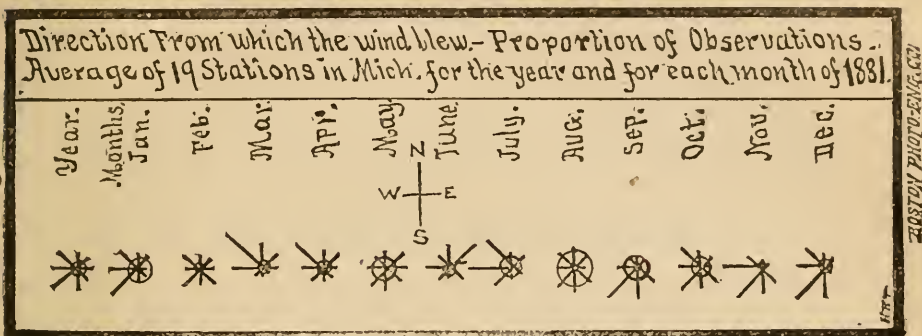 Direction From which the wind blew.- Proportion of Observations..
Average of 19 Stations in Mich. for the year and for each month of 1881.
Year. Months Jan. Feb. Mar. Apr. May June July. Aug. Sep. Oct. Nov. Dec.
N
W E
S
BOSTON PHOTO-ENG. CO.